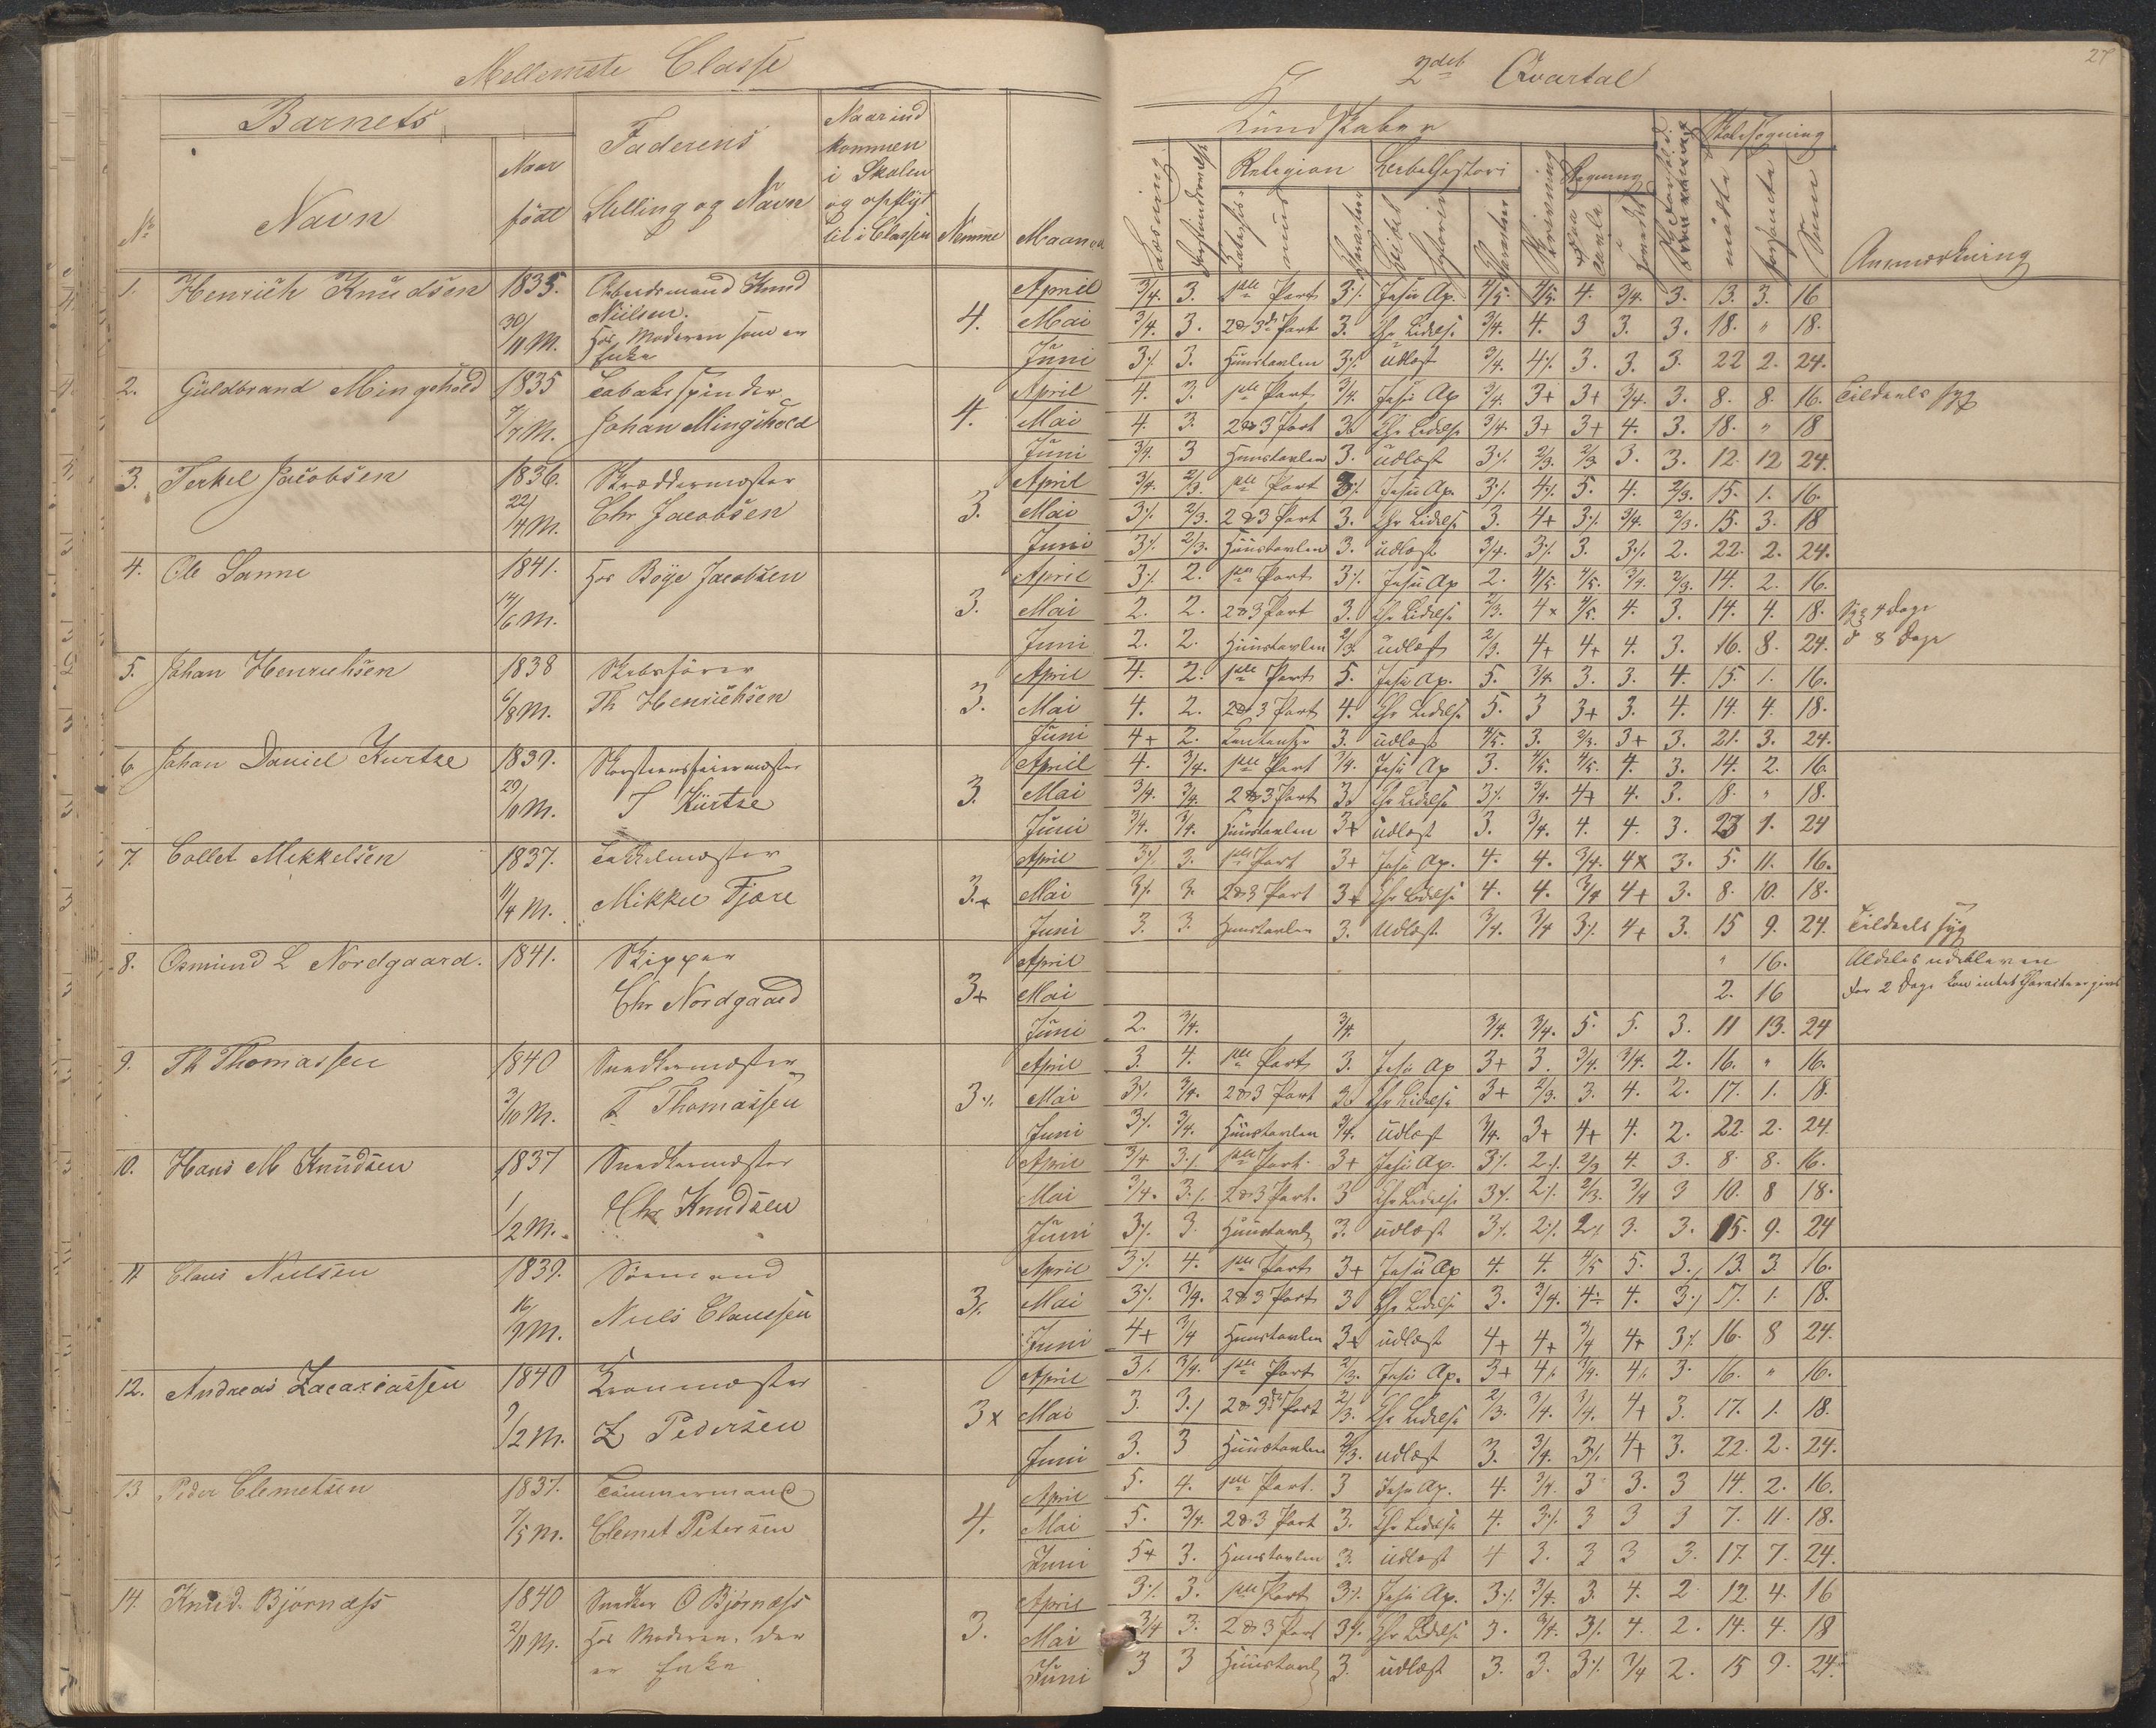 Mellemste Classe
2det Qvartal
27
Barnets
Faderens
Naar ind
kommen
i Skolen
og opflyt
tet i Classen
Naar
født
Stilling og Navn
No
Navn
Nemme
Maaned
Kundskaber
Skolesøgning
Læsning
Religion
Bibelhistori
Skrivning
Regning
mødte
forsømte
Sum
Anmærkning
1. Henrich Knudsen 1835. Arbeidsmand Knud April 3/4. 3. 1ste Part 3·/. Jesu Ap. 4/5. 4/5. 4. 3/4. 3. 13. 3. 16
30/11 M. Nielsen. 4. Mai 3/4. 3. 2 & 3die Part 3. Chr Lidelse 3/4. 4. 3 3. 3. 18. " 18.
Hos Moderen som er
Enke Juni 3·/. 3. Huustavlen 3·/. udlæst 3/4. 4·/. 3. 3. 3. 22 2. 24.
2. Guldbrand Mingshold 1835 Tobaksspinder April 4. 3. 1ste Part 3/4. Jesu Ap 3/4. 3+ 3+ 3/4. 3. 8. 8. 16. Tildeels syg
7/7 M. Johan Mingshold 4. Mai 4. 3. 2 & 3 Part 3. Chr Lidelse 3/4. 3+ 3+ 4. 3. 18. " 18
Juni 3/4. 3 Huustavlen 3. udlæst 3·/. 2/3. 2/3 3. 3. 12. 12 24.
3. Terkel Jacobsen 1836. Skræddermester April 3/4. 2/3. 1ste Part 3·/. Jesu Ap. 3·/. 4·/. 5. 4. 2/3. 15. 1. 16.
22/4 M. Chr Jacobsen 3. Mai 3·/. 2/3. 2 & 3 Part 3. Chr Lidelse 3. 4+ 3·/. 3/4. 2/3. 15. 3. 18
Juni 3·/. 2/3. Huustavlen 3. udlæst 3/4. 3·/. 3. 3·/. 2. 22. 2. 24.
4. Ole Sanne 1841. Hos Böye Jacobsen April 3·/. 2. 1ste Part 3·/. Jesu Ap 2. 4/5. 4/5. 3/4. 2/3. 14. 2. 16.
14/6 M. 3. Mai 2. 2. 2 & 3 Part 3. Chr Lidelse 2/3. 4x 4/5. 4. 3. 14. 4. 18. Syg 4 Dage
Juni 2. 2. Huustavlen 2/3. udlæst 2/3. 4+ 4+ 4. 3. 16. 8. 24. d 8 Dage
5. Johan Henrichsen 1838 Skibsfører April 4. 2. 1ste Part 5. Jesu Ap. 5. 3/4 3. 3. 4. 15. 1. 16.
6/8 M. Th Henrichsen 3. Mai 4. 2. 2 & 3 Part 4. Chr Lidelse 5. 3 3+ 3. 4. 14. 4. 18.
Juni 4+ 2. 3. udlæst 4/5. 3. 2/3. 3+ 3. 21. 3. 24.
6. Johan Daniel Kurtze 1839. Skorsteensfeiermester April 4. 3/4. 1ste Part 3/4. Jesu Ap 3. 4/5. 4/5. 4. 3. 14. 2. 16.
29/11 M. T Kürtze 3. Mai 3/4. 3/4. 2 & 3 Part 3. Chr Lidelse 3·/. 3/4. 4+ 4. 3. 18. " 18.
Juni 3/4. 3/4. Huustavlen 3+ udlæst 3. 3/4. 4. 4. 3. 23 1. 24
7. Collet Mekkelsen 1837. Takkelmester April 3·/. 3. 1ste Part 3+ Jesu Ap. 4. 4. 3/4. 4x 3. 5. 11. 16.
11/4 M. Mikkel Fjære 3.+ Mai 3·/. 3. 2 & 3 Part 3+ Chr Lidelse 4. 4. 3/4 4+ 3. 8. 10. 18.
Juni 3. 3. Huustavlen 3. Udlæst 3/4. 3/4 3·/. 4+ 3. 15 9. 24. Tildeels syg
8. Osmund L Nordgaard. 1841. Skipper April " 16. Aldeles udebleven
Chr Nordgaard 3+ Mai 2. 16 For 2 Dage kan intet Character gives
Juni 2. 3/4. 3/4. 3/4. 3/4. 5. 5. 3. 11 13. 24
9. Th Thomassen 1840 Snedkermester April 3. 4. 1ste Part 3. Jesu Ap 3+ 3. 3/4. 3/4. 2. 16. " 16.
3/10 M. T Thomassen 3·/. Mai 3·/. 3/4. 2 & 3 Part 3. Chr Lidelse 3+ 2/3. 3. 4. 2. 17. 1. 18.
Juni 3·/. 3/4. Huustavlen 3/4. udlæst 3/4. 3+ 4+ 4. 2. 22. 2. 24.
10. Hans M Knudsen 1837 Snedkermester April 3/4 3·/. 1ste Part. 3+ Jesu Ap. 3·/. 2·/. 2/3 4. 3. 8. 8. 16.
1/2 M. Chr Knudsen Mai 3/4. 3·/. 2 & 3 Part. 3 Chr Lidelse 3·/. 2·/. 2/3. 3/4 3 10. 8 18.
Juni 3·/. 3. Huustavl 3. udlæst 3·/. 2·/. 2·/. 3. 3. 15. 9. 24
11 Claus Nielsen 1839. Sømand April 3·/. 4. 1ste Part 3+ Jesu Ap 4. 4. 4/5 5. 3·/. 13. 3. 16.
16/9 M. Niels Claussen 3·/. Mai 3·/. 3/4. 2 & 3 Part 3 Chr Lidelse 3. 3/4. 4·/. 4. 3·/. 17. 1. 18.
Juni 4+ 3/4 Huustavlen 3+ udlæst 4+ 4+ 3/4 4+ 3·/. 16. 8 24.
12. Andreas Zacariassen 1840 Kranmester April 3·/. 3/4. 1ste Part 2/3. Jesu Ap. 3+ 4·/. 3/4. 4·/. 3. 16. " 16.
9/2 M. Z Pedersen 3x Mai 3. 3·/. 2 & 3die Part 2/3. Chr Lidelse 2/3. 3/4. 3/4. 4+ 3. 17. 1. 18.
Juni 3. 3 Huustavlen 2/3. udlæst 3. 3/4. 3·/. 4+ 3. 22. 2. 24.
13 Peder Clemetsen 1837. Tømmermand April 5. 4. 1ste Part. 3 Jesu Ap. 4. 3/4. 3 3. 3 14. 2. 16.
7/5 M. Clemet Petersen 4. Mai 5. 3/4. 2 & 3 Part 3. Chr Lidelse 4. 3·/. 3 3 3 7. 11. 18.
Juni 5+ 3. Huustavlen 3. udlæst 4 3. 3 3 3. 17. 7. 24.
14. Knud Bjørnæss 1840 Snedker O Bjørnæss April 3·/. 3. 1ste Part 3·/. Jesu Ap. 3·/. 3/4. 3. 4. 2 12. 4. 16
2/11 M. Hos Moderen, der 3. Mai 3/4 3. 2 & 3 Part 3·/. Chr Lidelse 3. 3/4. 3·/. 4. 2. 14. 4. 18
er Enke Juni 3 3 Huustavl 3. udlæst 3. 3. 3·/. 3/4 2. 15 9. 24.